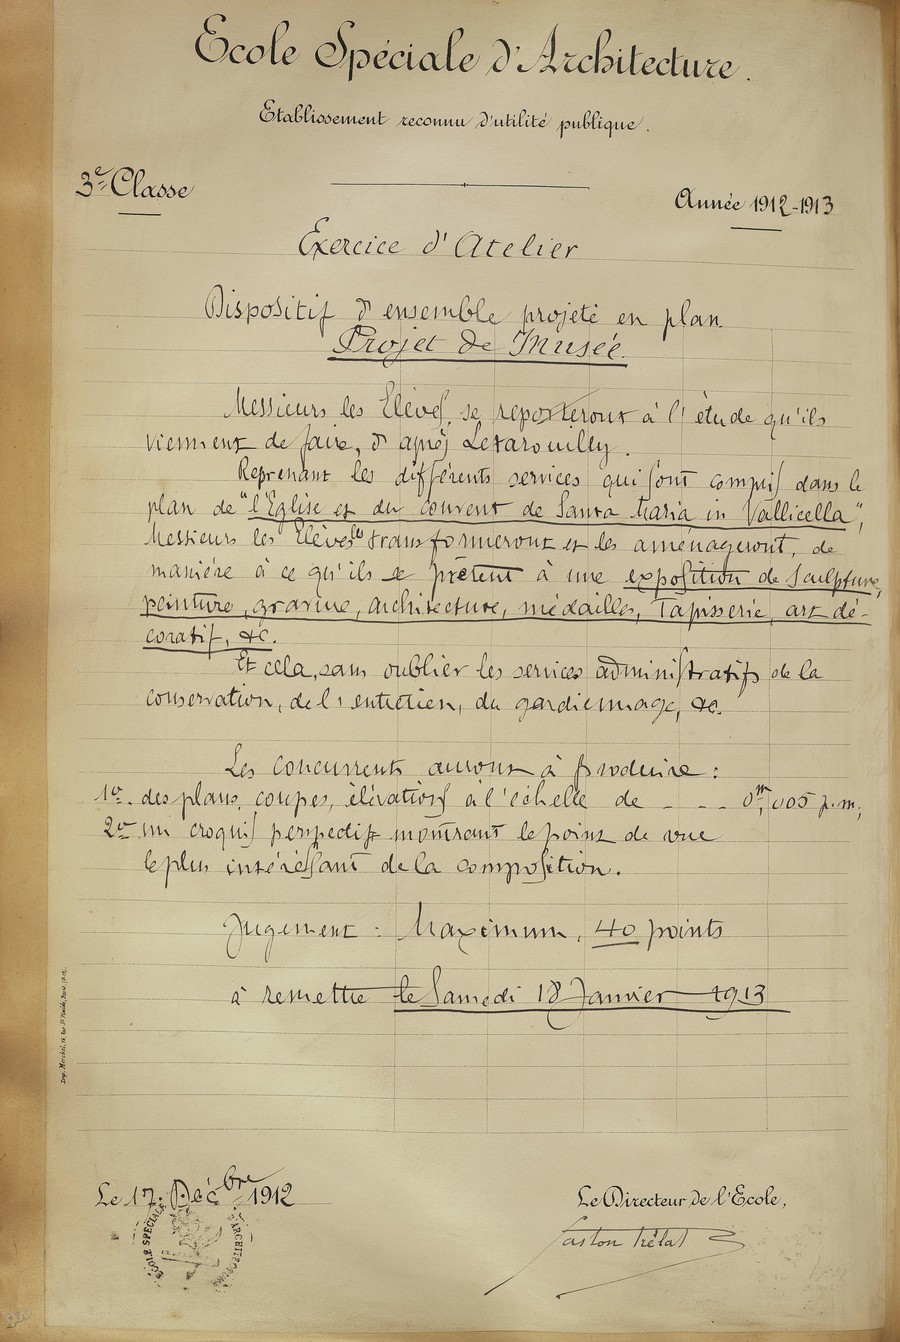 Ecole Spéciale d'Architecture.
Etablissement reconnu d'utilité publique.
3e Classe
Année 1912-1913
Exercice d'Atelier
Dispositif d'ensemble projeté en plan
Projet de Musée.
Messieurs les Elèves, se reporteront à l'étude qu'ils
viennent de faire, d'après Letarouilly.
Reprenant les différents services qui sont compris dans le
plan de "l'Eglise et du couvent de Santa Maria in Vallicella",
Messieurs les Elèves les transformeront et les aménageront, de
manière à ce qu'ils se prêtent à une exposition de Sculpture,
peinture, gravure, architecture, médailles, Tapisserie, art dé-
coratif, &c.
Et cela, sans oublier les services administratifs de la
conservation, de l'entretien, du gardiennage, &c.
Les concurrents auront à produire :
1o. des plans, coupes, élévations à l'échelle de - - - 0m,005 p.m;
2o un croquis perspectif montrant le point de vue
le plus intéressant de la composition.
Jugement : Maximum, 40 points
à remettre le Samedi 18 Janvier 1913
Le 17 Décbre 1912
Le Directeur de l'Ecole,
Gaston Trélat
ECOLE SPÉCIALE D'ARCHITECTURE